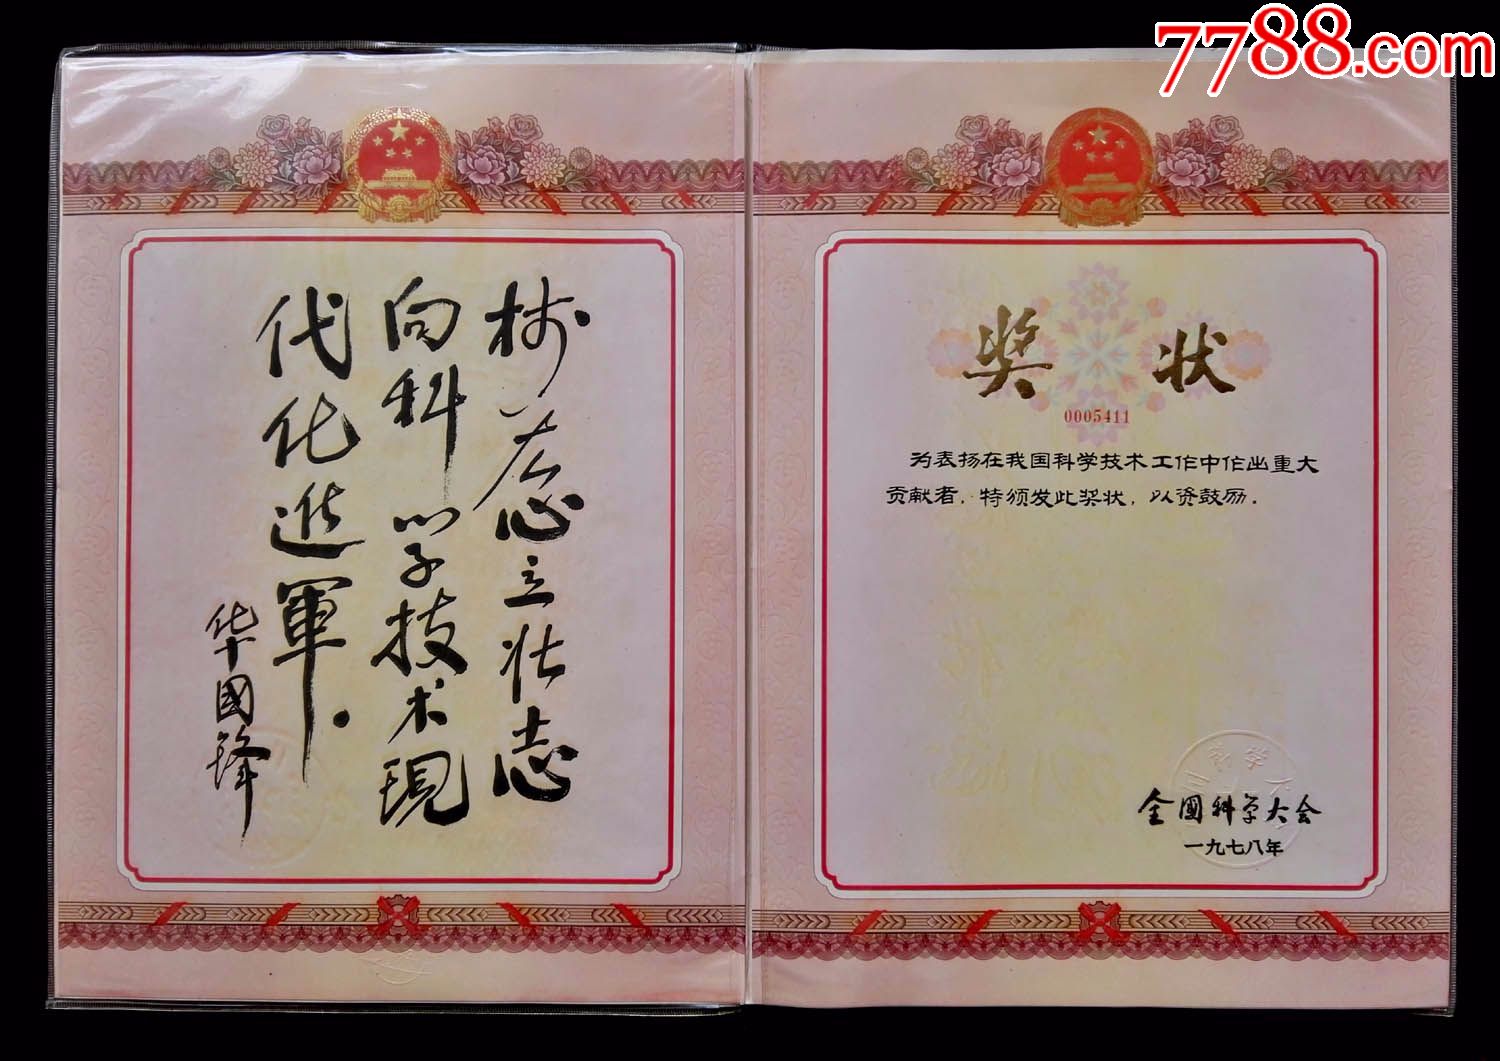 7788.com
树雄心立壮志
向科学技术現
代化進軍.
华國锋
奖状
0005411
为表扬在我国科学技术工作中作出重大
贡献者,特颁发此奖状,以资鼓励.
全國科学大会
一九七八年